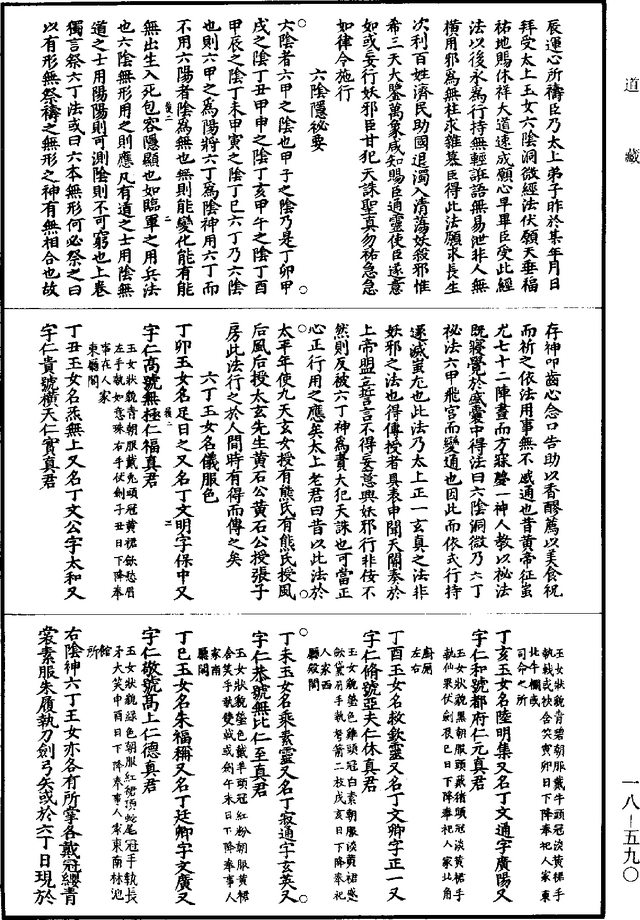 道藏
辰運心所禱臣乃太上弟子昨於某年月日
拜受太上玉女六陰洞微經法伏願天垂福
祐地賜休祥大道速成願心早畢臣受此經
法以後永為行持無輕誑語無易泄非人無
橫用邪為無枉求雜慕臣得此法願求長生
次利百姓濟民助國退濁入清蕩妖殺邪惟
希三天大鑒萬象咸知賜臣通靈使臣遂意
如或妄行妖邪臣甘犯天誅聖真勿祐急急
如律令施行
六陰隱祕要
六陰者六甲之陰也甲子之陰乃是丁卯甲
戌之陰丁丑甲申之陰丁亥甲午之陰丁酉
甲辰之陰丁未甲寅之陰丁巳六丁乃六陰
也則六甲之為陽將六丁為陰神用六丁而
不用六陽者陰為無也無則能變化能有能
無出生入死包容隱顯也如臨軍之用兵法
也六陰無形用之則應凡有道之士用陰無
道之士用陽陽則可測陰則不可窮也上卷
獨言祭六丁法或曰六本無形何必祭之曰
以有形無祭禱之無形之神有無相合也故
存神叩齒心念口告助以香醪薦以美食祝
而祈之依法用事無不感通也昔黃帝征蚩
尤七十二陣晝而方寐驚一神人教以祕法
既寤覺於盛囊中得法曰六陰洞微乃六丁
祕法六甲飛宮而變通也因此而依式行持
遂滅蚩尤也此法乃太上正一玄真之法非
妖邪之法也得傳授者具表申聞天闕奏於
上帝盟立誓言不得妄意興妖邪行非侫不
然則反被六丁神為責大犯天誅也可當正
心正行用之應矣太上老君曰昔以此法於
太平年使九天玄女授有熊氏有熊氏授風
后風后授太玄先生黃石公黃石公授張子
房此法行之於人間時有得而傳之矣
六丁玉女名儀服色
丁卯玉女名足日之又名丁文明字保中又
字仁高號無極仁福真君
玉女狀貌青朝服戴兔頭冠黃裙斂愁眉
左手執如意珠右手伏劍子丑日下降奉
事在人家
東廳閣
丁丑玉女名炁無上又名丁文公字太和又
字仁貴號橫天仁寶真君
玉女狀貌青碧朝服戴牛頭冠淡黃裙手
執戟或挾含笑寅卯日下降奉祀人家東
北牛欄或
司命之所
丁亥玉女名陸明集又名丁文通字廣陽又
字仁和號都府仁元真君
玉女狀貌黑朝服頭戴猪頭冠淡黃裙手
執仙果伏劍辰巳日下降奉祀人家北角
廚屋
左右
丁酉玉女名救欽靈又名丁文卿字正一又
字仁脩號亞夫仁休真君
玉女貌瑩色雞頭冠白素朝服淡黃裙感
斂黛眉手執弩箭二枝戌亥日下降奉祀
人家西
廳殿閣
丁未玉女名乘素靈又名丁寂通字玄英又
字仁恭號無比仁至真君
玉女狀貌瑩色戴羊頭冠紅粉朝服黃裙
含笑手執雙戟或劍午未日下降奉事人
家南
廳閣
丁巳玉女名朱福稱又名丁廷卿字文廣又
字仁敬號高上仁德真君
玉女狀貌綠色朝服紅裙頂蛇尾冠手執長
矛大笑申酉日下降奉事人家東南林迎
館
所
右陰神六丁玉女亦各有所掌各戴冠纓青
裳素服朱履執刀劍弓矢或於六丁日現於
一八—五九〇